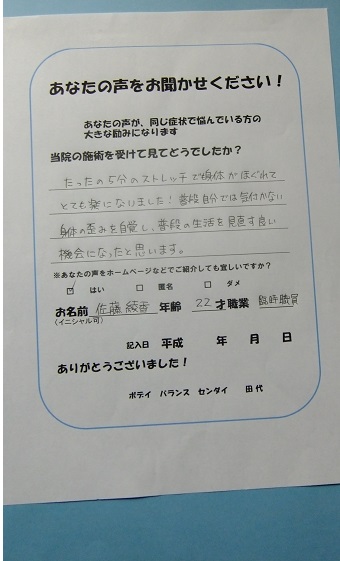 あなたの声をお聞かせください！
あなたの声が、同じ症状で悩んでいる方の
大きな励みになります
当院の施術を受けて見てどうでしたか？
たったの5分のストレッチで身体がほぐれて
とても楽になりました！普段自分では気付かない
身体の歪みを自覚し、普段の生活を見直す良い
機会になったと思います。
※あなたの声をホームページなどでご紹介しても宜しいですか？
☑ はい □ 匿名 □ ダメ
お名前 佐藤 綾香 年齢 22 才 職業 臨時職員
（イニシャル可）
記入日 平成 年 月 日
ありがとうございました！
ボディ バランス センダイ 田代